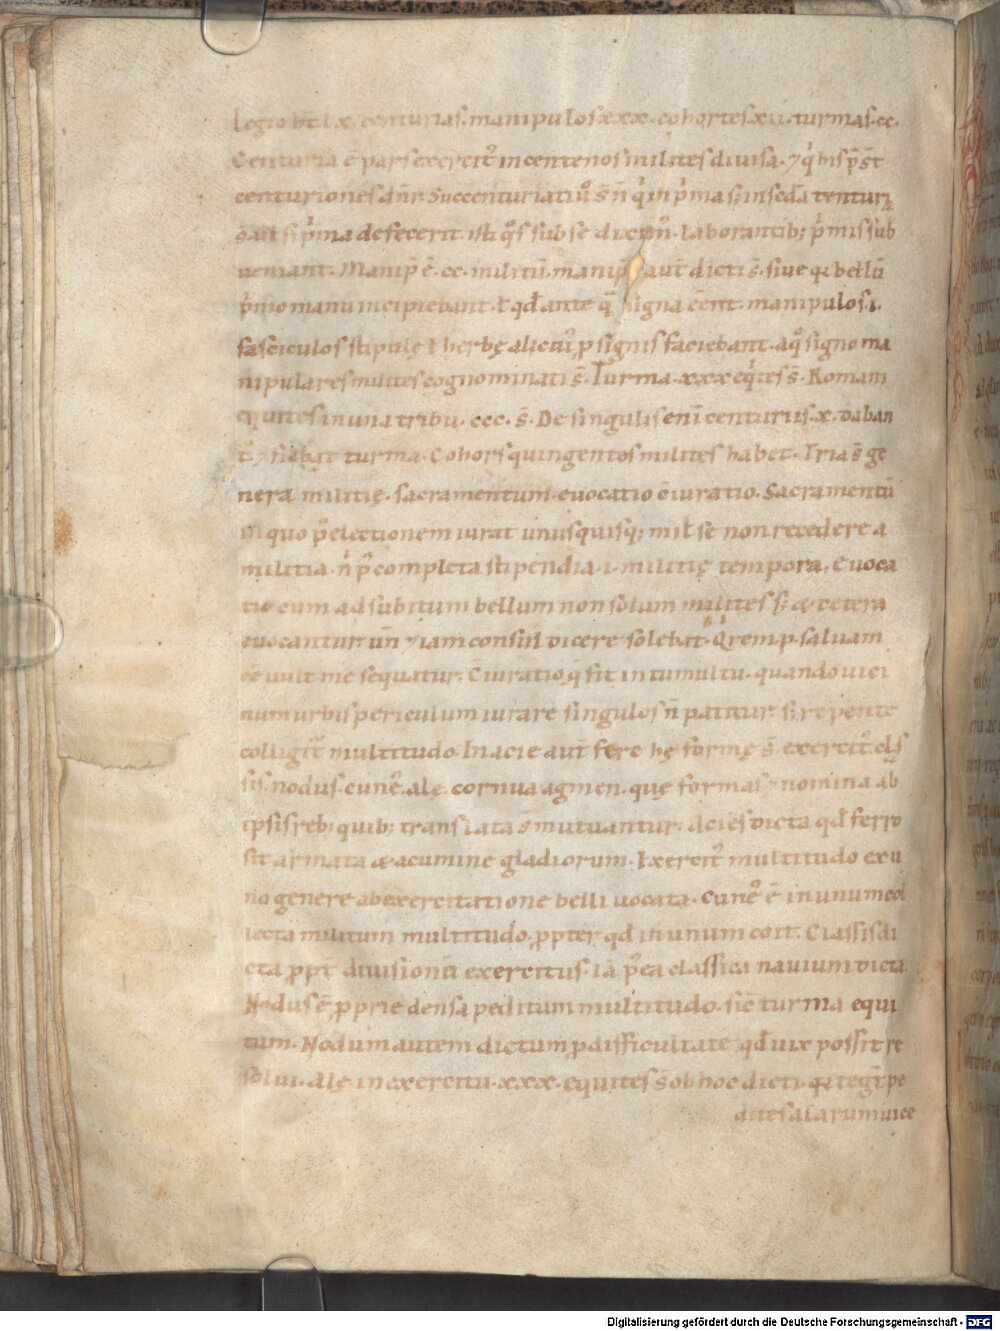 legio ht lx. centurias. manipulos xxx. cohortes xii. turmas. cc.
Centuria ē pars exercit᷑ in centenos milites divisa. ⁊ q̇ his p̄sꝰt
centuriones dn̄r. Succenturiati ūo s̄ n̄ q̇ in ṗma s; in scd̄a centuria
s̄ aut si ṗma defecerit isti q̊s sub se dixim᷑. laborantib; ṗmis sub
veniant. Manip᷑ ē. cc. militū. manip᷑ aut̄ dicti s̄. sive qa bellū
ṗmo manu incipiebant. ł qd̄ ante q̄ signa eēnt. manipulos .i.
fasciculos stipulę ł herbę alicui᷑ p signis faciebant. a q̊ signo ma
nipulares milites cognominati s̄. Turma. xxx eq̇tes s̄. Romani
equites in una tribu. ccc. s̄. De singulis enī centuriis. x. daban
t᷑. ⁊ fiebat turma. Cohors quingentos milites habet. Tria s̄ ge
nera militię. sacramentum. evocatio. c̄iuratio. Sacramentū
in quo p̄ electionem iurat unusquisq; miles se non recedere a
militia. n̄ p̄ completa stipendia .i. militię tempora. Evoca
tio cum ad subitum bellum non solum milites s; & cetera
evocantur. un̄ ⁊iam consul dicere solebat. Q̇ remp. salvam
eē vult me sequatur. C̄iuratio. q̄ fit in tumultu. quando vici
num urbis periculum iurare singulos n̄ patitur. s; repente
colligit᷑ multitudo. In acie aut̄ fere hę formę s̄ exercit᷑. clas
sis. nodus. cune᷑. alę. cornua. agmen. quę formas ⁊ nomina ab
ipsis reb; quib; translata s̄ mutuantur. Acies dicta qd̄ ferro
sit armata & acumine gladiorum. Exercit᷑ multitudo ex u
no genere ab exercitatione belli vocata. Cune᷑ ē in unum col
lecta militum multitudo. ppter qd̄ in unum coit. Classis di
cta ppt̄ divisionē exercitus. ⁊ā p̄ea classica navium dicta
Nodus ē pprie densa peditum multitudo. sic turma equi
tum. Nodum autem dictum p difficultate qd̄ vix possit re
solvi. Alę in exercitu. xxx. equites s̄ ob hoc dicti. qa tegt᷑ pe
dites alarum vice
Digitalisierung gefördert durch die Deutsche Forschungsgemeinschaft - DFG